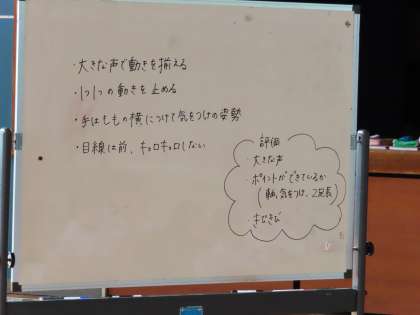 ・大きな声で動きを揃える
・1つ1つの動きを止める
・手はももの横につけて気をつけの姿勢
・目線は前、キョロキョロしない
評価
・大きな声
・ポイントができているか
(軸、気をつけ、2足長)
・きびきび